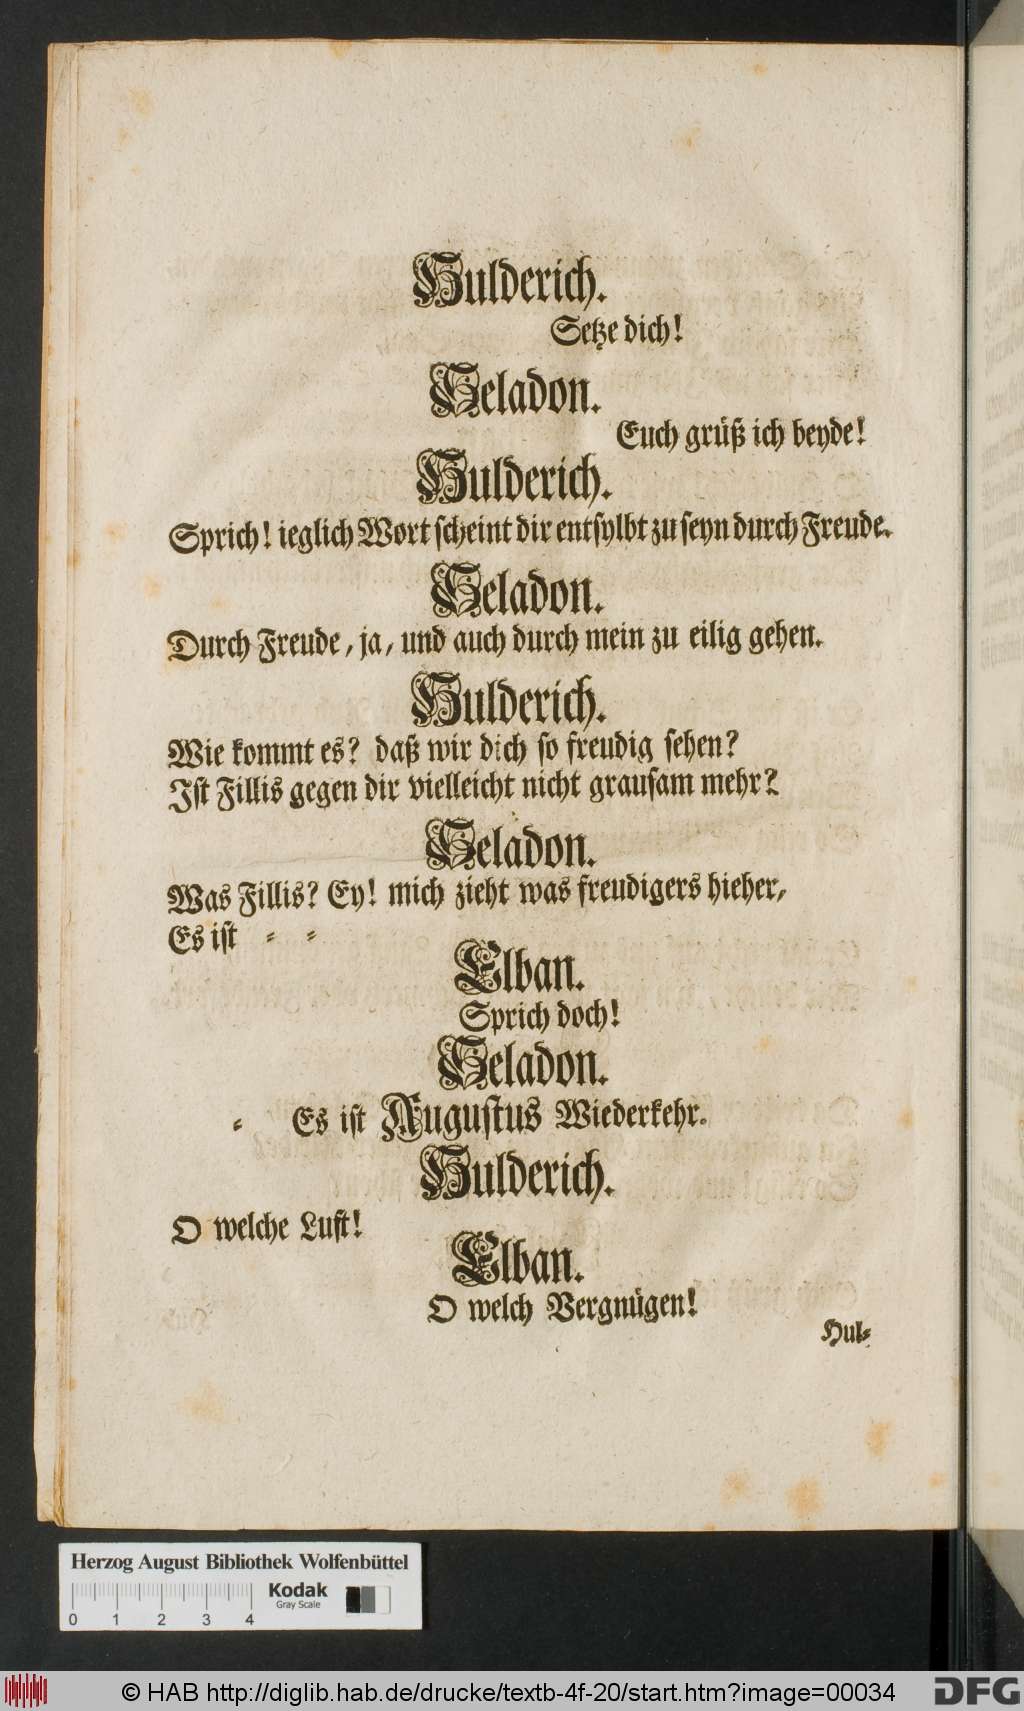 Hulderich.
Setze dich!
Seladon.
Euch grüß ich beyde!
Hulderich.
Sprich! ieglich Wort scheint dir entsylbt zu seyn durch Freude.
Seladon.
Durch Freude, ja, und auch durch mein zu eilig gehen.
Hulderich.
Wie kommt es? daß wir dich so freudig sehen?
Ist Fillis gegen dir vielleicht nicht grausam mehr?
Seladon.
Was Fillis? Ey! mich zieht was freudigers hieher,
Es ist = =
Elban.
Sprich doch!
Seladon.
= Es ist Augustus Wiederkehr.
Hulderich.
O welche Lust!
Elban.
O welch Vergnügen!
Hul=
Herzog August Bibliothek Wolfenbüttel
Kodak
Gray Scale
0 1 2 3 4
© HAB http://diglib.hab.de/drucke/textb-4f-20/start.htm?image=00034
DFG